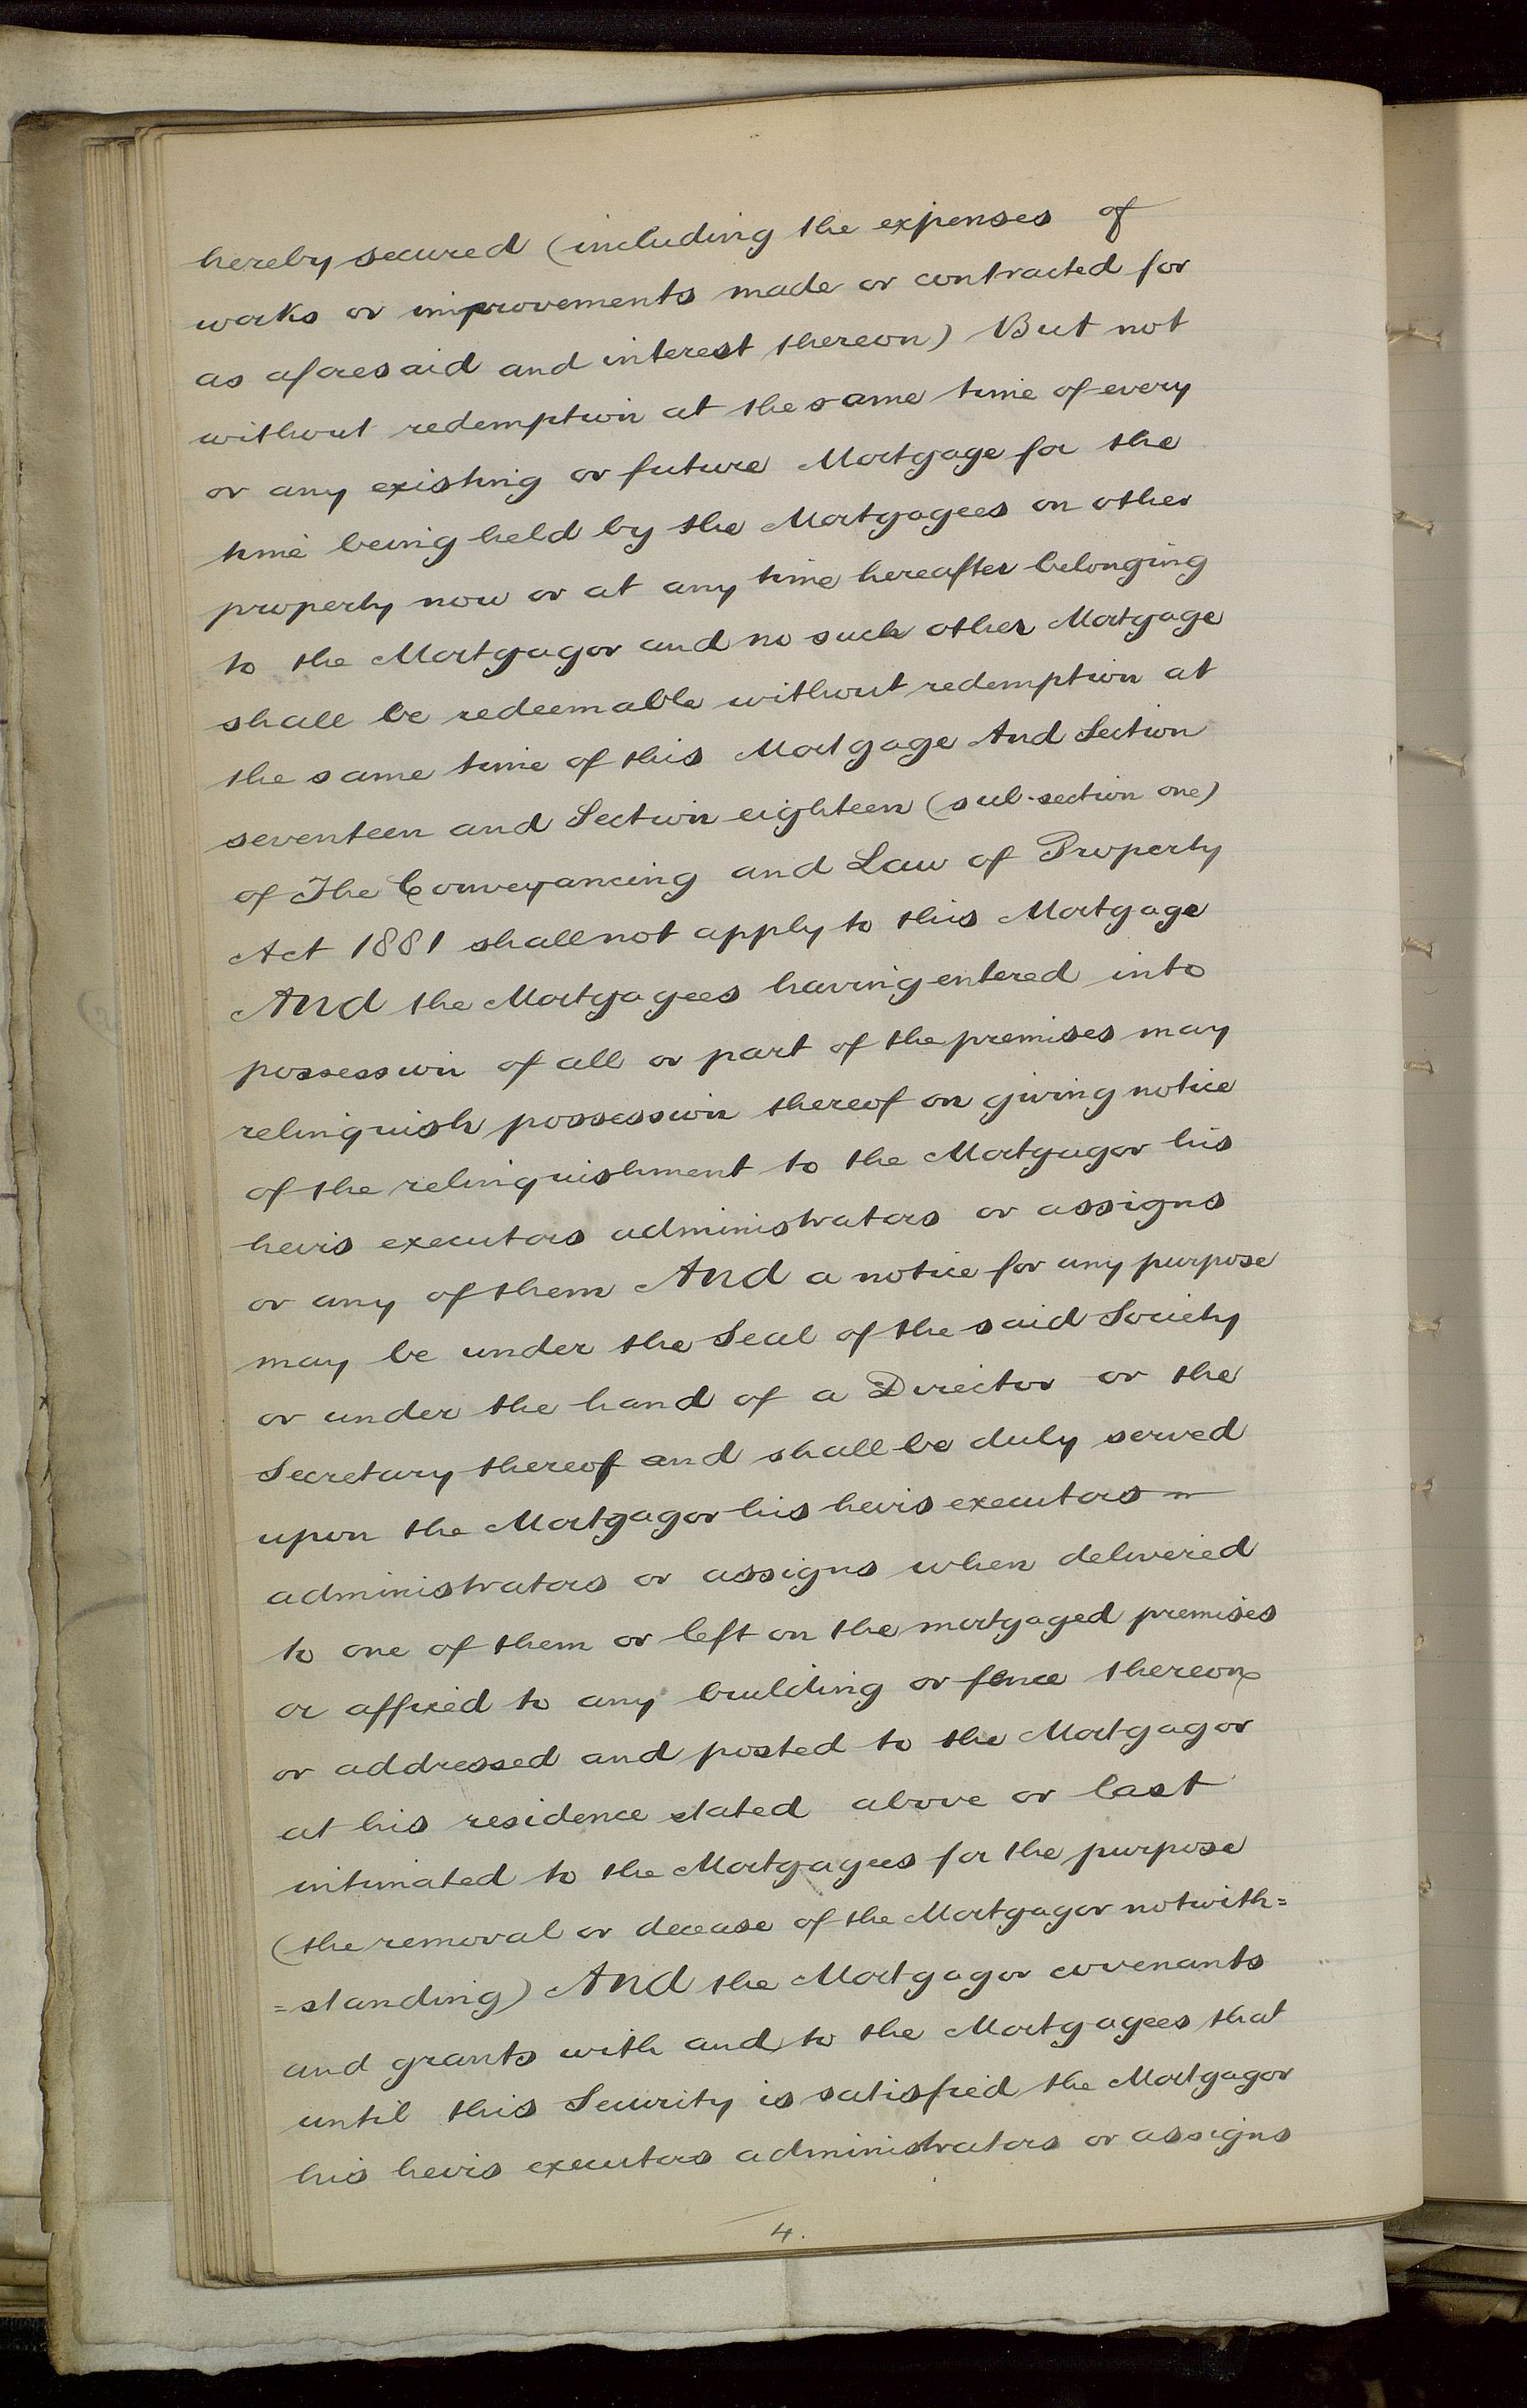 hereby secured (including the expenses of
works or improvements made or contracted for
as aforesaid and interest thereon) But not
without redemption at the same time of every
or any existing or future Mortgage for the
time being held by the Mortgagees on other
property now or at any time hereafter belonging
to the Mortgagor and no such other Mortgage
shall be redeemable without redemption at
the same time of this Mortgage And Section
seventeen and Section eighteen (sub-section one)
of The Conveyancing and Law of Property
Act 1881 shall not apply to this Mortgage
And the Mortgagees having entered into
possession of all or part of the premises may
relinquish possession thereof on giving notice
of the relinquishment to the Mortgagor his
heirs executors administrators or assigns
or any of them And a notice for any purpose
may be under the Seal of the said Society
or under the hand of a Director or the
Secretary thereof and shall be duly served
upon the Mortgagor his heirs executors
administrators or assigns when delivered
to one of them or left on the mortgaged premises
or affixed to any building or fence thereon
or addressed and posted to the Mortgagor
at his residence stated above or last
intimated to the Mortgagees for the purpose
(the removal or decease of the Mortgagor notwith=
=standing) And the Mortgagor covenants
and grants with and to the Mortgagees that
until this Security is satisfied the Mortgagor
his heirs executors administrators or assigns
4.